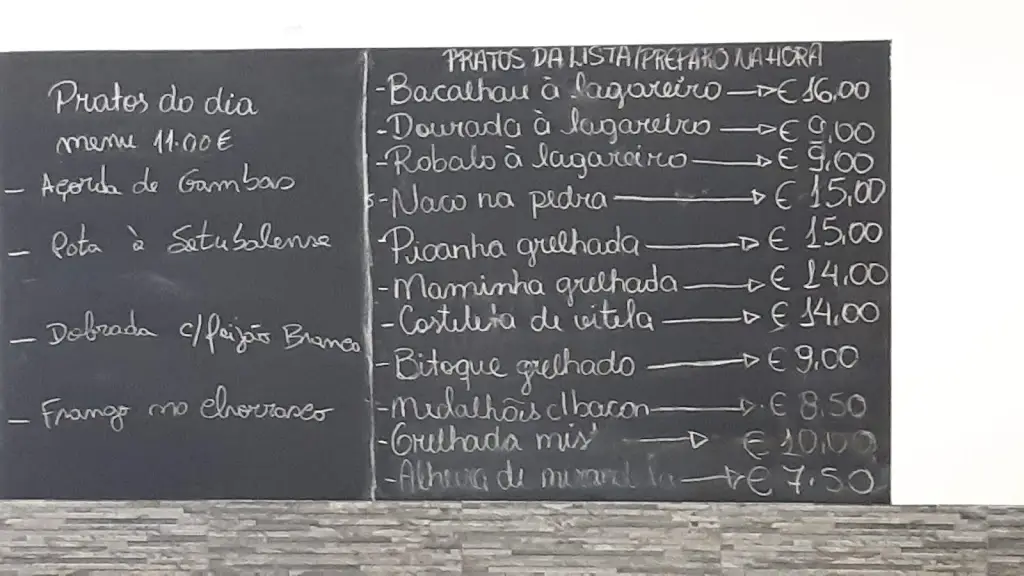 Pratos do dia
menu 11.00€
- Açorda de Gambas
- Pota à Setubalense
- Dobrada c/feijão Branco
- Frango no churrasco
PRATOS DA LISTA/PREPARO NA HORA
-Bacalhau à lagareiro → € 16,00
-Dourada à lagareiro → € 9,00
-Robalo à lagareiro → € 9,00
-Naco na pedra → € 15,00
-Picanha grelhada → € 15,00
-Maminha grelhada → € 14,00
-Costeleta de vitela → € 14,00
-Bitoque grelhado → € 9,00
-Medalhõis c/bacon → € 8.50
-Grelhada mis → € 10,00
-Alheira de → € 7.50